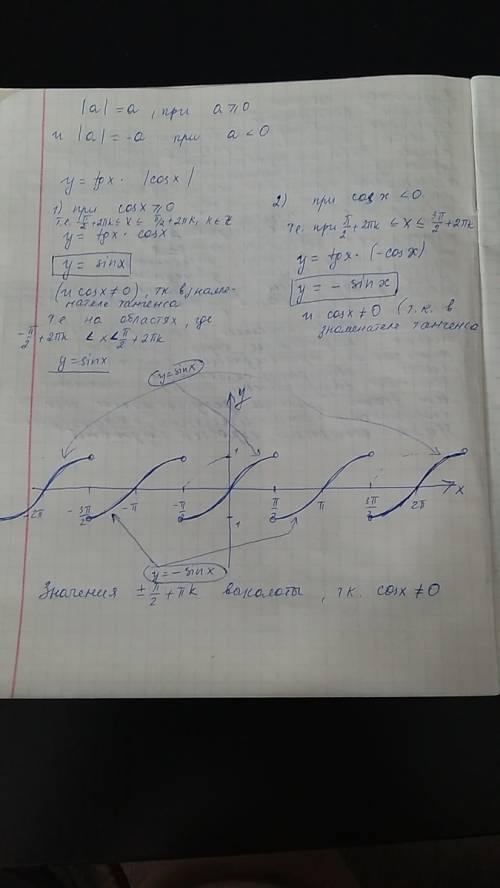 |a| = a , при a ≥ 0
и |a| = -a при a < 0
y = tgx · |cosx|
1) при cosx ≥ 0
т.е. -π/2+2πk ≤ x ≤ π/2+2πk, k∈Z
y = tgx · cosx
y = sinx
(и cosx ≠ 0), т.к. в знаме-
нателе тангенса
т.е. на областях, где
-π/2+2πk < x < π/2+2πk
y = sinx
2) при cosx < 0
т.е. при π/2+2πk ≤ x ≤ 3π/2+2πk
y = tgx · (-cosx)
y = - sinx
и cosx ≠ 0 (т.к. в
знаменателе тангенса
y = sinx
y
1
-2π -3π/2 -π -π/2 π/2 π 3π/2 2π x
1
y = - sinx
Значения ± π/2 + πk выколоты, т.к. cosx ≠ 0